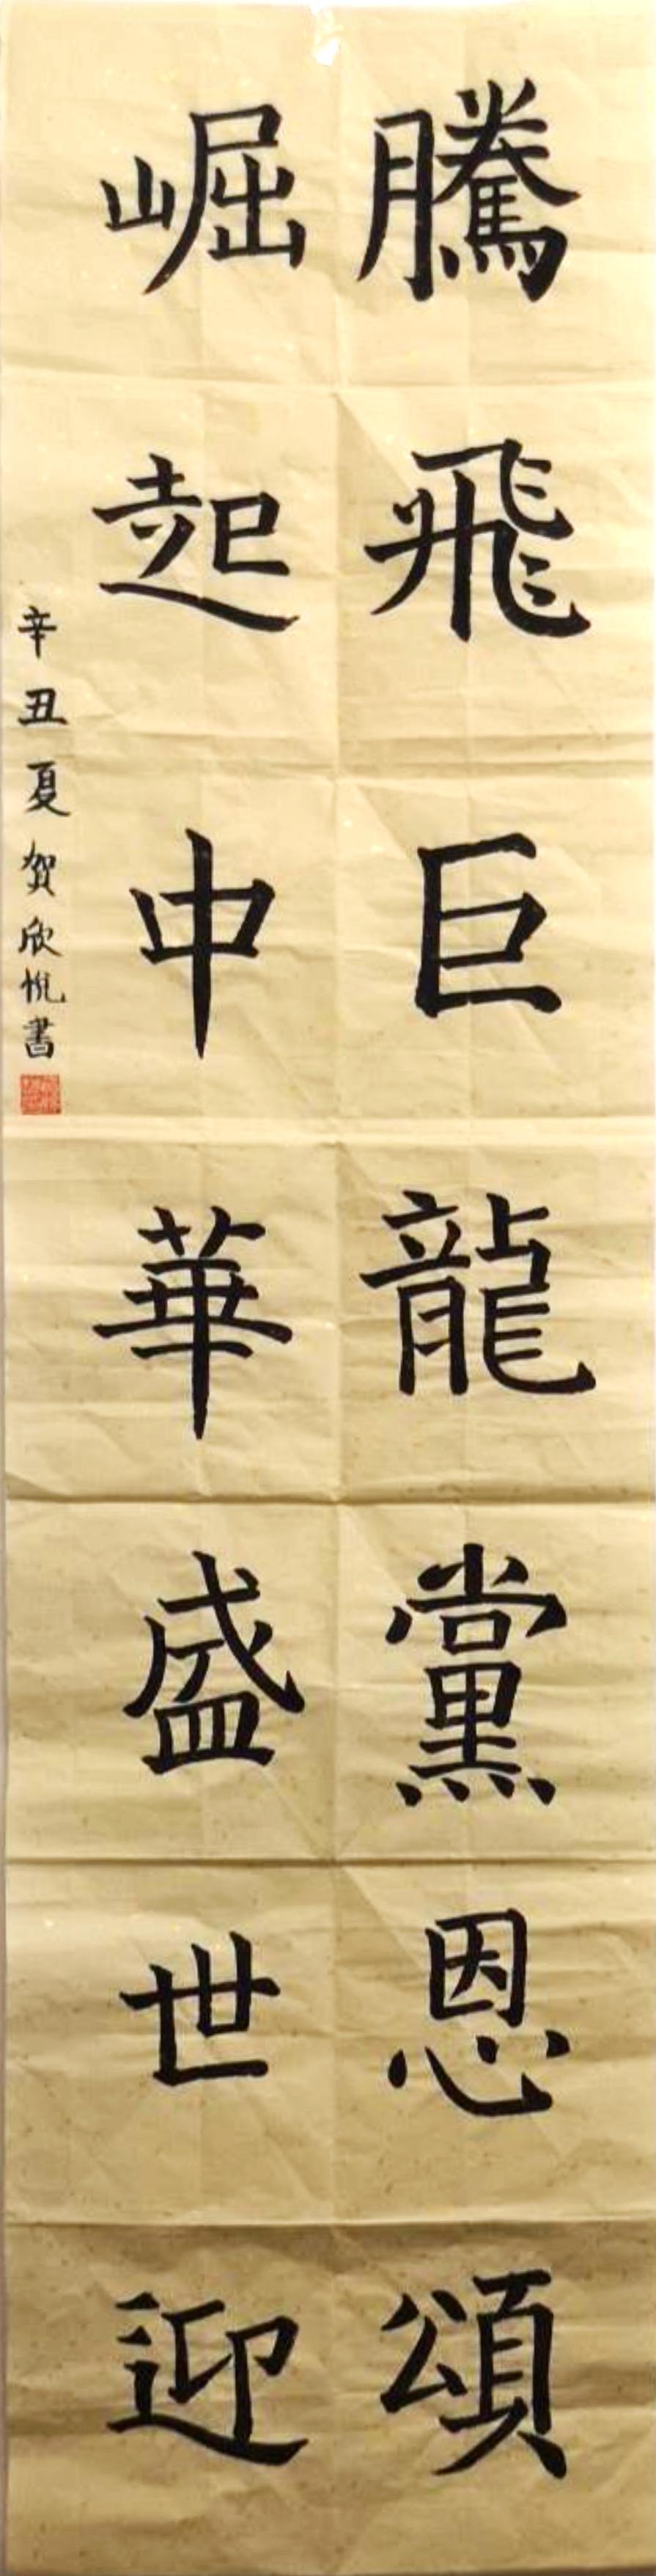 騰飛巨龍黨恩頌
崛起中華盛世迎
辛丑夏賀欣悦書